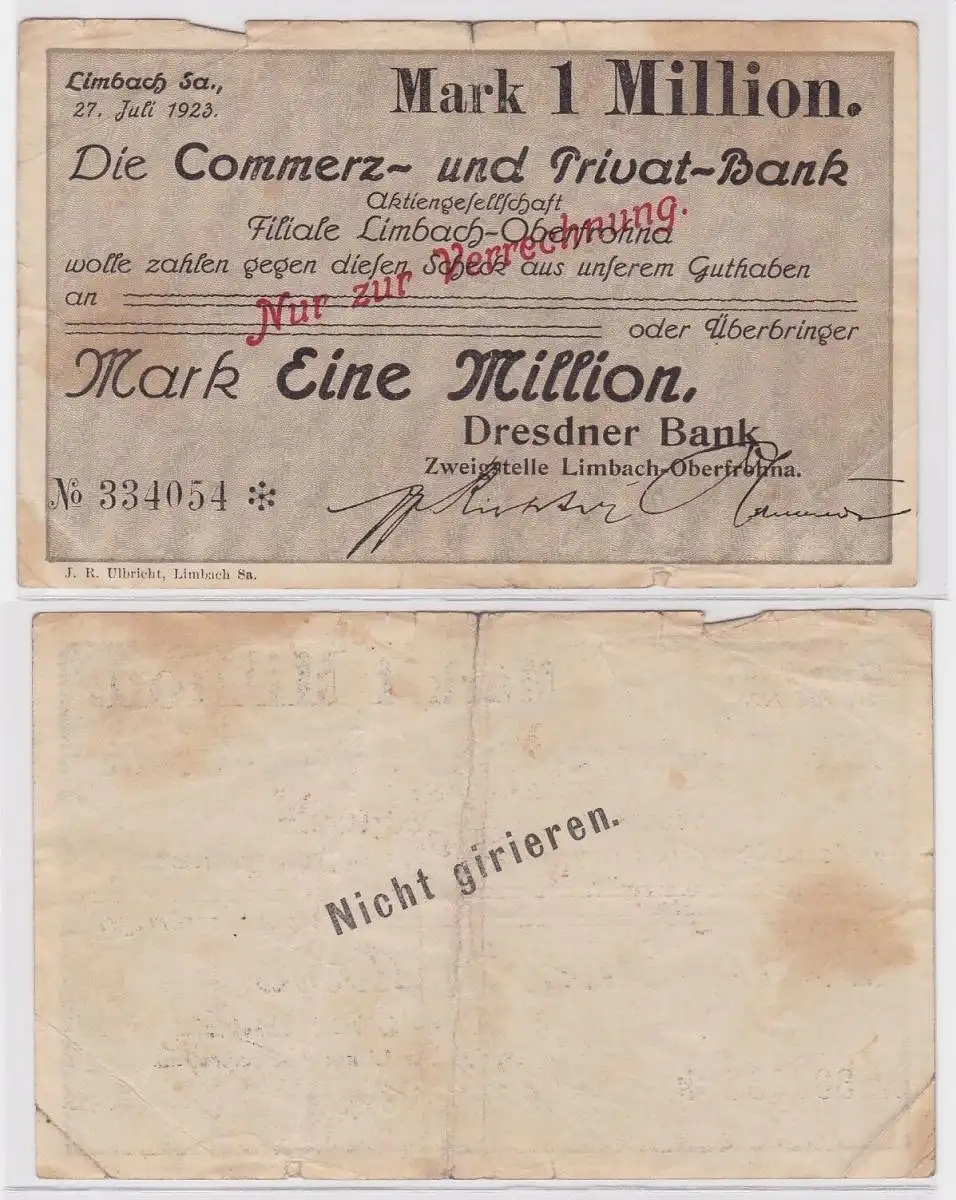 Limbach Sa.,
27. Juli 1923.
Mark 1 Million.
Die Commerz- und Privat-Bank
Aktiengesellschaft
Filiale Limbach-Oberfrohna
wolle zahlen gegen diesen Scheck aus unserem Guthaben
an
oder Überbringer
Nur zur Verrechnung.
Mark Eine Million.
Dresdner Bank
Zweigstelle Limbach-Oberfrohna.
No 334054
J. R. Ulbricht, Limbach Sa.
Nicht girieren.